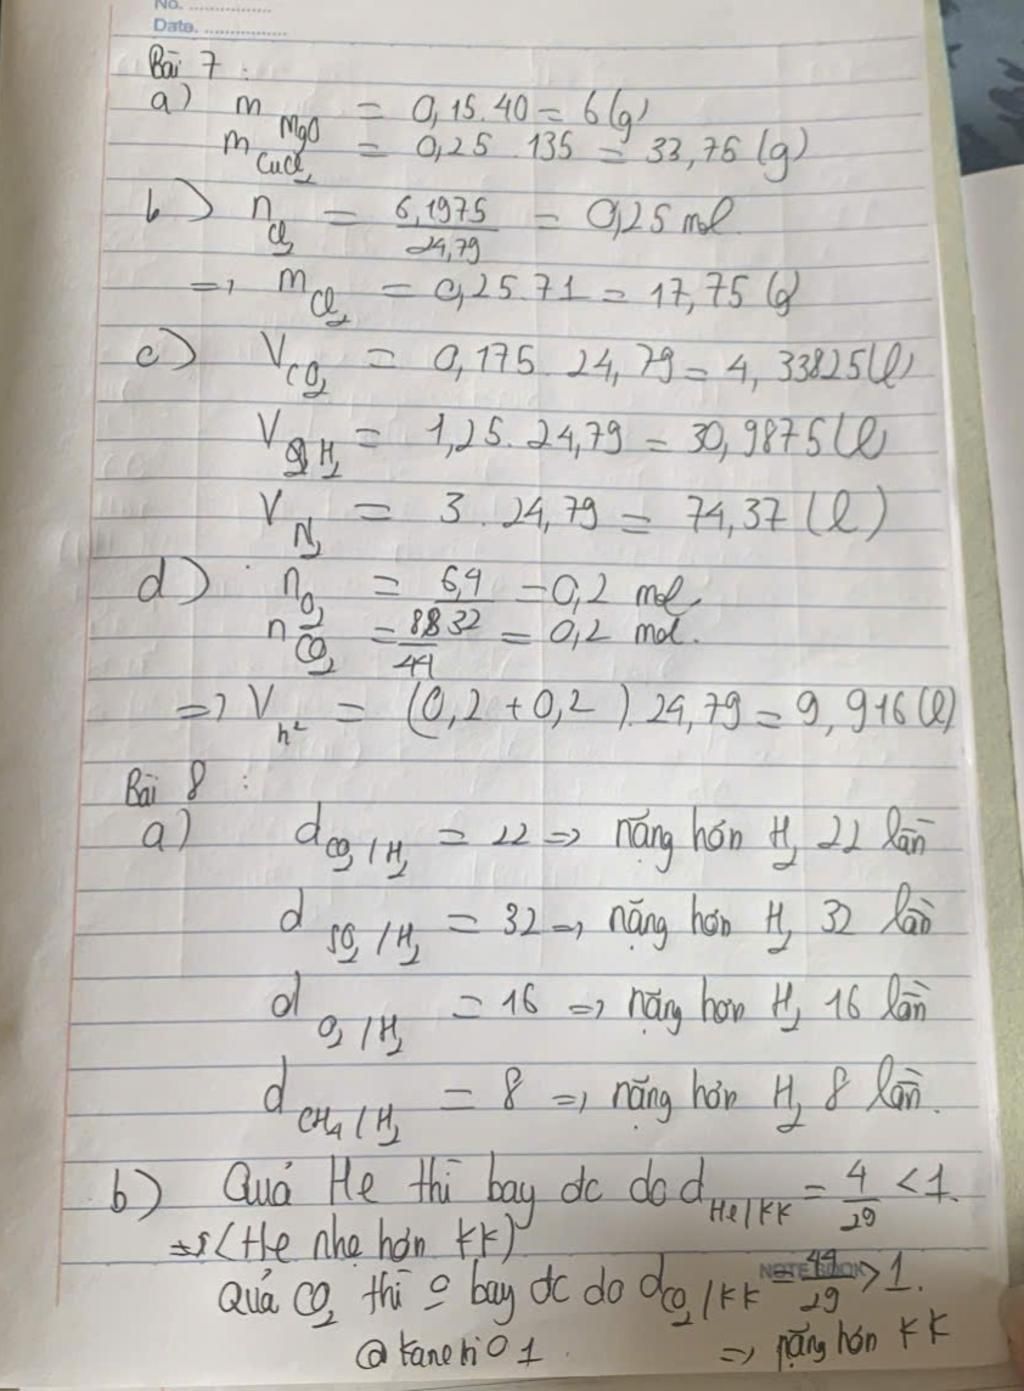 No. ................
Date. ................
Bài 7 :
a) m MgO = 0,15.40 = 6(g)
m CuCl₂ = 0,25 . 135 = 33,75 (g)
b) n Cl₂ = 6,1975/24,79 = 0,25 mol
=> m Cl₂ = 0,25.71 = 17,75 (g)
c) V CO₂ = 0,175 . 24,79 = 4,33825(l)
V H₂ = 1,25 . 24,79 = 30,9875(l)
V N₂ = 3 . 24,79 = 74,37 (l)
d) n O₂ = 6,4/32 = 0,2 mol
n CO₂ = 8,8/44 = 0,2 mol.
=> V h² = (0,2 + 0,2) . 24,79 = 9,916(l)
Bài 8 :
a) d CO₂/H₂ = 22 => nặng hơn H₂ 22 lần
d SO₂/H₂ = 32 => nặng hơn H₂ 32 lần
d O₂/H₂ = 16 => nặng hơn H₂ 16 lần
d CH₄/H₂ = 8 => nặng hơn H₂ 8 lần.
b) Quả He thì bay dc do d He/KK = 4/29 < 1.
=> (He nhẹ hơn KK)
NOTE BOOK
Quả CO₂ thì o bay dc do d CO₂/KK = 44/29 > 1.
=> nặng hơn KK